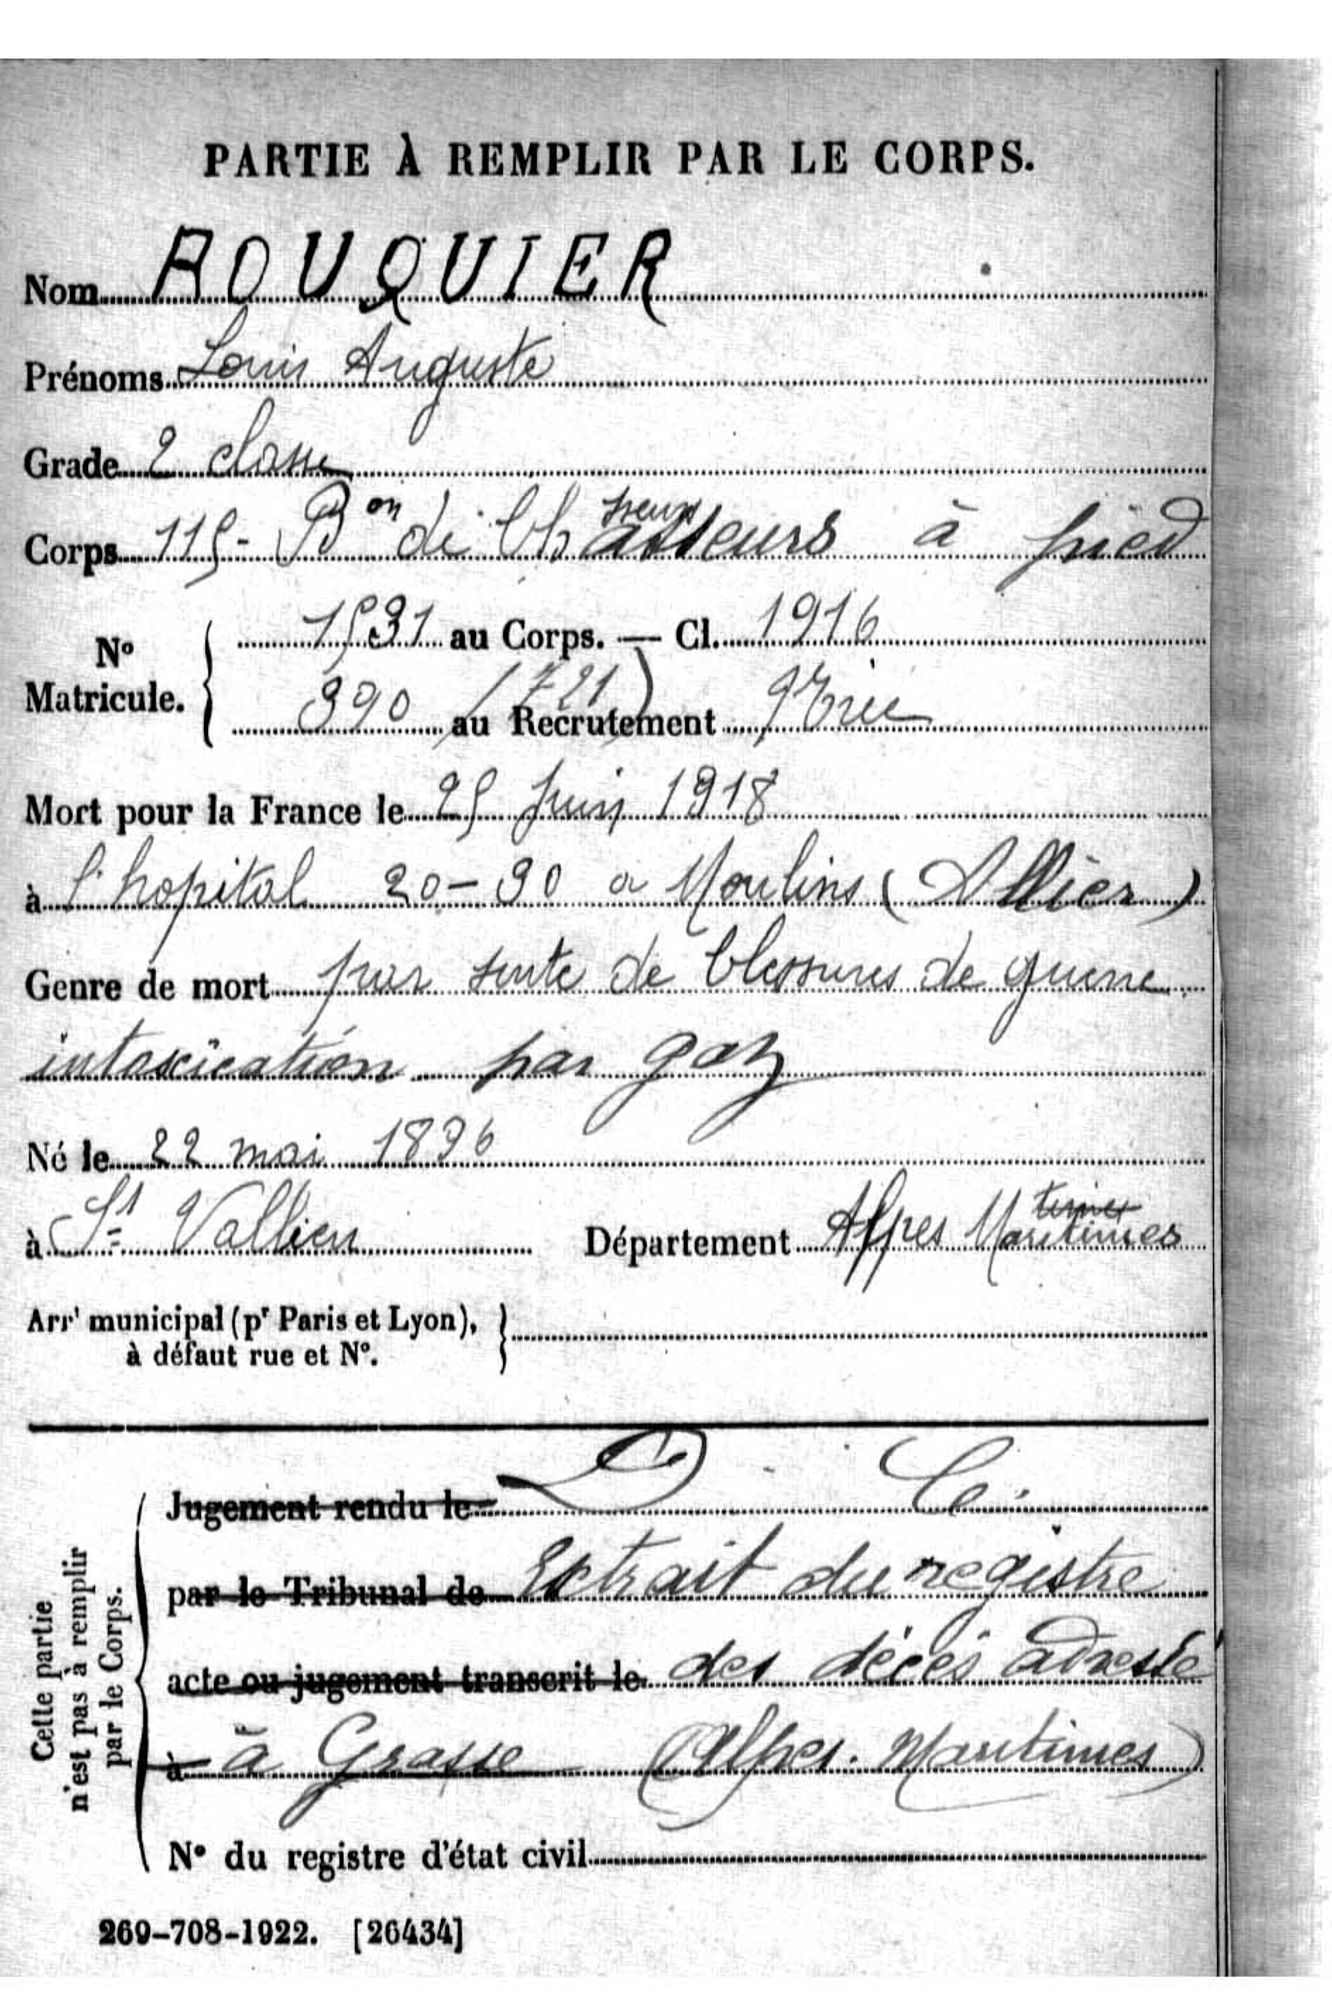 PARTIE À REMPLIR PAR LE CORPS.
Nom ROUQUIER
Prénoms Louis Auguste
Grade 2 classe
Corps 115 - Bon de Chasseurs à pied
No Matricule. 1531 au Corps. — Cl. 1916
390 (721) au Recrutement
Mort pour la France le 25 Juin 1918
à l'hopital 20-90 a Moulins (Allier)
Genre de mort par suite de blessures de guerre
intoxication par gaz
Né le 22 mai 1896
à St Vallier Département Alpes Maritimes
Arrt municipal (pr Paris et Lyon),
à défaut rue et No.
Cette partie
n'est pas à remplir
par le Corps.
Jugement rendu le D. C.
par le Tribunal de Extrait du registre
acte ou jugement transcrit le des décés adressé
à à Grasse (Alpes-Maritimes)
No du registre d'état civil
269-708-1922. [26434]